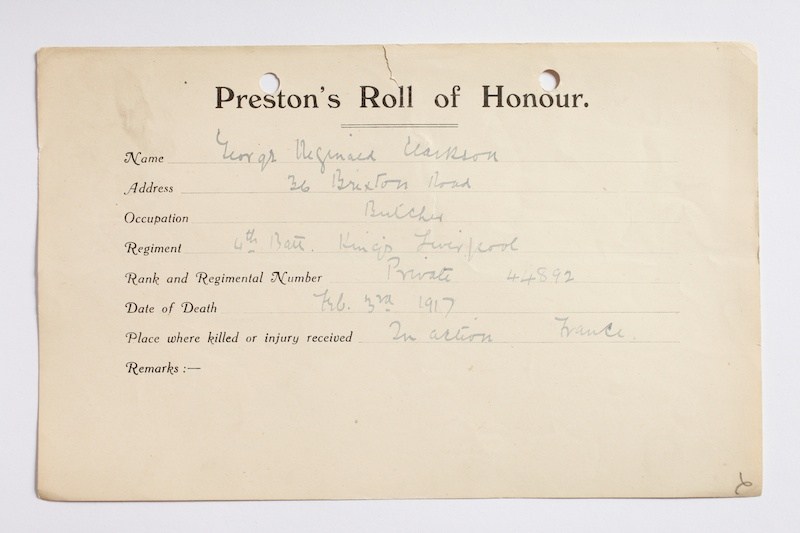 Preston's Roll of Honour.
Name George Reginald Clarkson
Address 36 Brixton Road
Occupation Butcher
Regiment 4th Batt. King's Liverpool
Rank and Regimental Number Private 44892
Date of Death Feb. 3rd 1917
Place where killed or injury received In action France.
Remarks :—